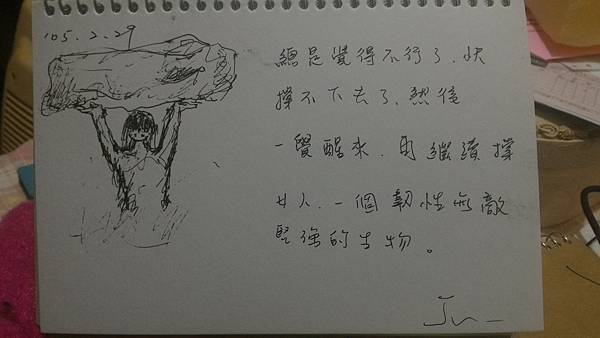 '05.2.29
總是覺得不行了.快
撐不下去了.然後
一覺醒來.再繼續撐
女人.一個韌性無敵
堅強的生物。
Jun